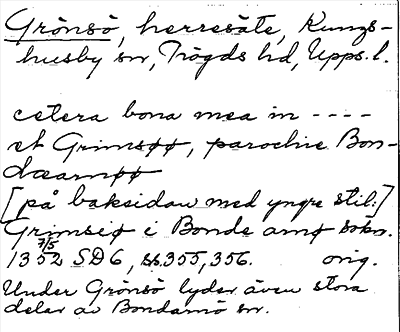 Grönsö, herresäte, Kungs-
husby sn, Trögds hd, Upps. l.
cetera bona mea in ----
et Grimsøø, parochie Bon-
dæarnøø
[på baksidan med yngre stil:]
Grimsiø i Bonde arnø sokn.
1352 7/5 SD6, ss. 355, 356. orig.
Under Grönsö lyder även stora
delar av Bondarnö sn.